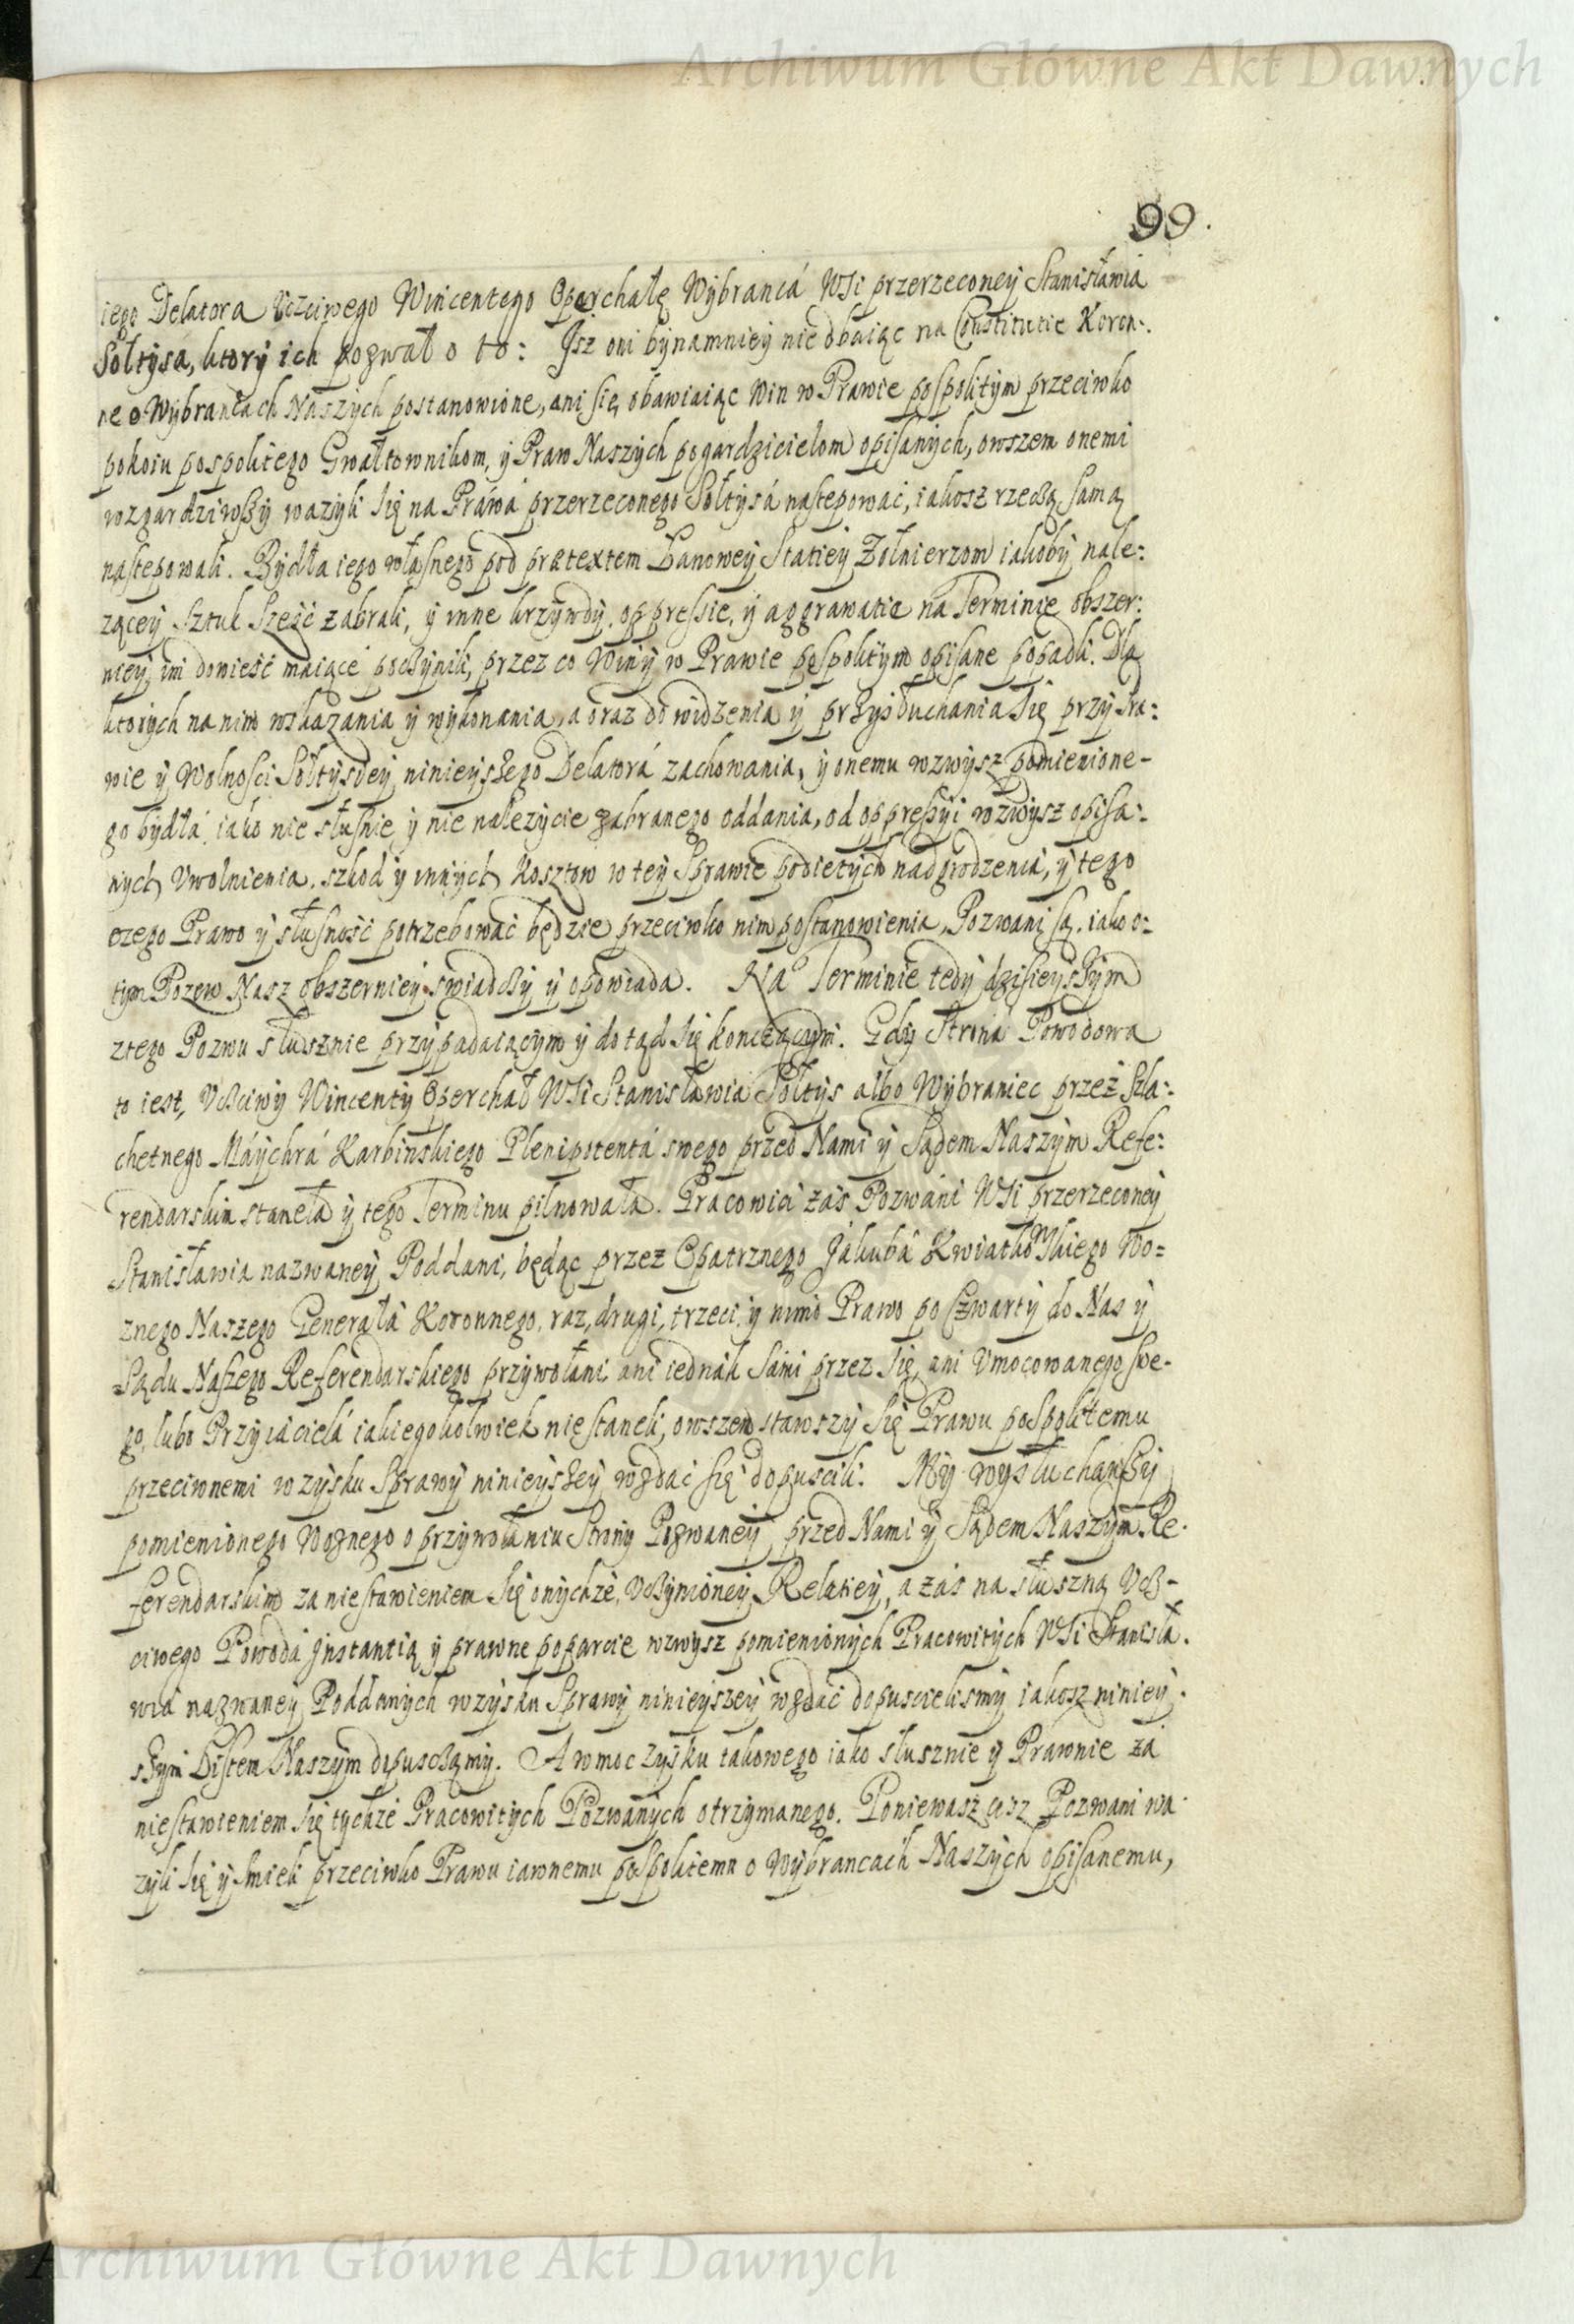 Archiwum Główne Akt Dawnych
99.
iego Delatora Vczciwego Wincentego Operchałę Wybrancá WSi przerzeconey Stanisławia
Sołtysa, ktory ich pozwał o to: Jsz oni bynamniey nie dbaiąc na Constitutie Koron:
ne o Wybrancach Naszych postanowione, ani się obawiaiąc Win w Prawie pospolitym przeciwko
pokoiu pospolitego Gwałtownikom, y Praw Naszych pogardzicielom opisanych, owszem onemi
wzgardziwszy wazyli się na Práwá przerzeconego Sołtysá nastepować, iakosz rzeczą samą
nastepowali. Bydła iego własnego pod prætextem Łanowey Statiey Zołnierzom iakoby nale:
zącey Sztuk Sześć zabrali, y inne krzywdy, oppressie, y aggrawatie na Terminie obszer:
niey im dowieść maiące poczynili, przez co Winy w Prawie pospolitym opisane popadli. Dla
ktorych na nim wskazania y wykonania, a oraz do widzenia y przysłuchania się przy Pra:
wie y Wolnosci Sołtyskiey ninieyszego Delatorá zachowania, y onemu wzwysz pomienione-
go bydłá iako nie słusnie y nie nalezycie zabranego oddania, od oppressyi wzwysz opisa:
nych Vwolnienia, szkod y innych Kosztow w tey Sprawie podietych nadgrodzenia, y tego
czego Prawo y słusność potrzebować będzie przeciwko nim postanowienia, Pozwani są, iako o:
tym Pozew Nasz obszerniey swiadczy y opowiada. Na Terminie tedy dzisieyszym
ztego Pozwu słusznie przypadaiącym y dotąd się konczącym. Gdy Strona Powodowa
to iest, Vczciwy Wincenty Operchał WSi Stanisławia Sołtys albo Wybraniec przez Szla:
chetnego Máychrá Karbinskiego Plenipotentá swego przed Nami y Sądem Naszym Refe:
rendarskim stanęła y tego Terminu pilnowała. Pracowici zaś Pozwani WSi przerzeconey
Stanisławia nazwaney Poddani, będąc przez Opatrznego Jákubá Kwiatkowskiego Wo=
znego Naszego Generałá Koronnego, raz, drugi, trzeci, y nimo Prawo po Czwarty do Nas y
Sądu Naszego Referendarskiego przywołani, ani iednak sami przez się, ani Vmocowanego swe-
go, lubo Przyiacielá iakiegokolwiek nie staneli, owszem stawszy się Prawu pospolitemu
przeciwnemi w zysku Sprawy ninieyszey wzdać się dopuscili. My wysłuchawszy
pomienionego Woznego o przywołaniu Strony Pozwaney przed Nami y Sądem Naszym Re-
ferendarskim za niestawieniem się onychże, Vczynioney Relatiey, a zaś na słuszną Vcz-
ciwego Powodá Jnstantią y prawne poparcie wzwysz pomienionych Pracowitych WSi Stanisła-
wiá nazwaney Poddanych w zysku Sprawy ninieyszey wzdać dopuscielismy iakosz niniey-
szym Listem Naszym dopusczamy. A w moc zysku takowego iako słusznie y Prawnie zá
niestawieniem się tychże Pracowitych Pozwanych otrzymanego. Poniewasz cisz Pozwani wa-
zyli się y smieli przeciwko Prawu iawnemu pospolitemu o Wybrancach Naszych opisanemu,
Archiwum Główne Akt Dawnych